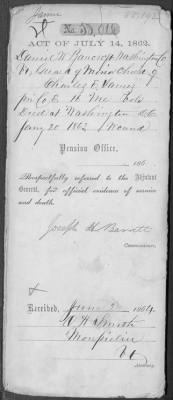 No. 55,016
ACT OF JULY 14, 1862.
Daniel W. Bancroft, Washington Co
Vt, Guard of Minor Child of
Charles E. Eames
Co. E. 11 Me Vols
Died at Washington DC
Jany 20 1862
Pension Office,
186
Respectfully referred to the Adjutant
General, for official evidence of service
and death.
Joseph H. Barrett
Commissioner.
Received, June 2 1864
Smith
Montpelier
Vt
Attorney.